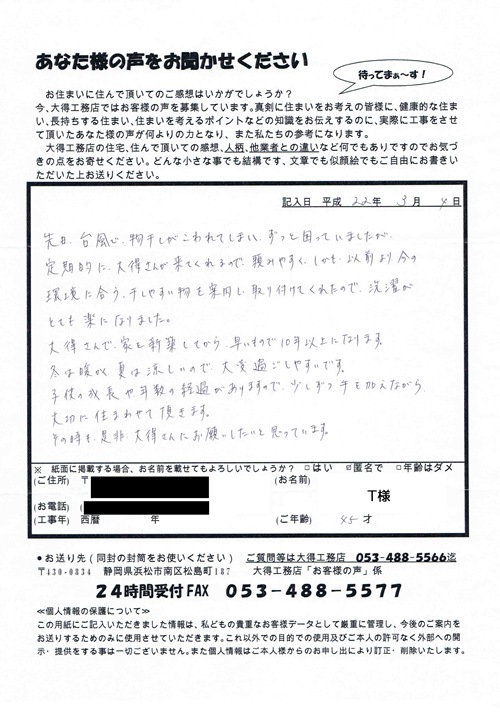 あなた様の声をお聞かせください
待ってまぁ～す！
お住まいに住んで頂いてのご感想はいかがでしょうか？
今、大得工務店ではお客様の声を募集しています。真剣に住まいをお考えの皆様に、健康的な住ま
い、長持ちする住まい、住まいを考えるポイントなどの知識をお伝えするのに、実際に工事をさせ
て頂いたあなた様の声が何よりの力となり、また私たちの参考になります。
大得工務店の住宅、住んで頂いての感想、人柄、他業者との違いなど何でもありですのでお気づ
きの点をお寄せください。どんな小さな事でも結構です、文章でも似顔絵でもご自由にお書きい
ただいた上お送りください。
記入日 平成 22年 3月 4日
先日、台風で、物干しがこわれてしまい、ずっと困っていましたが、
定期的に、大得さんが来てくれるので、頼みやすく、しかも、以前より今の
環境に合う、干しやすい物を案内し、取り付けてくれたので、洗濯が
とても楽になりました。
大得さんで、家を新築してから、早いもので10年以上になります。
冬は暖かく、夏は涼しいので、大変過ごしやすいです。
子供の成長や年数の経過がありますので、少しずつ手を加えながら、
大切に住まわせて頂きます。
その時も、是非、大得さんにお願いしたいと思っています。
※ 紙面に掲載する場合、お名前を載せてもよろしいでしょうか？ □はい ☑匿名で □年齢はダメ
(ご住所) 〒
(お名前)
T様
(お電話)
(工事年) 西暦 年
(ご年齢) 45才
●お送り先（同封の封筒をお使いください） ご質問等は大得工務店 053-488-5566迄
〒430-0834 静岡県浜松市南区松島町187 大得工務店「お客様の声」係
24時間受付FAX 053-488-5577
≪個人情報の保護について≫
この用紙にご記入いただきました情報は、私どもの貴重なお客様データとして厳重に管理し、今後のご案内を
お送りするためのみに使用させていただきます。これ以外での目的での使用及びご本人の許可なく外部への開
示・提供をする事は一切ございません。また個人情報はご本人様からのお申し出により訂正・削除いたします。